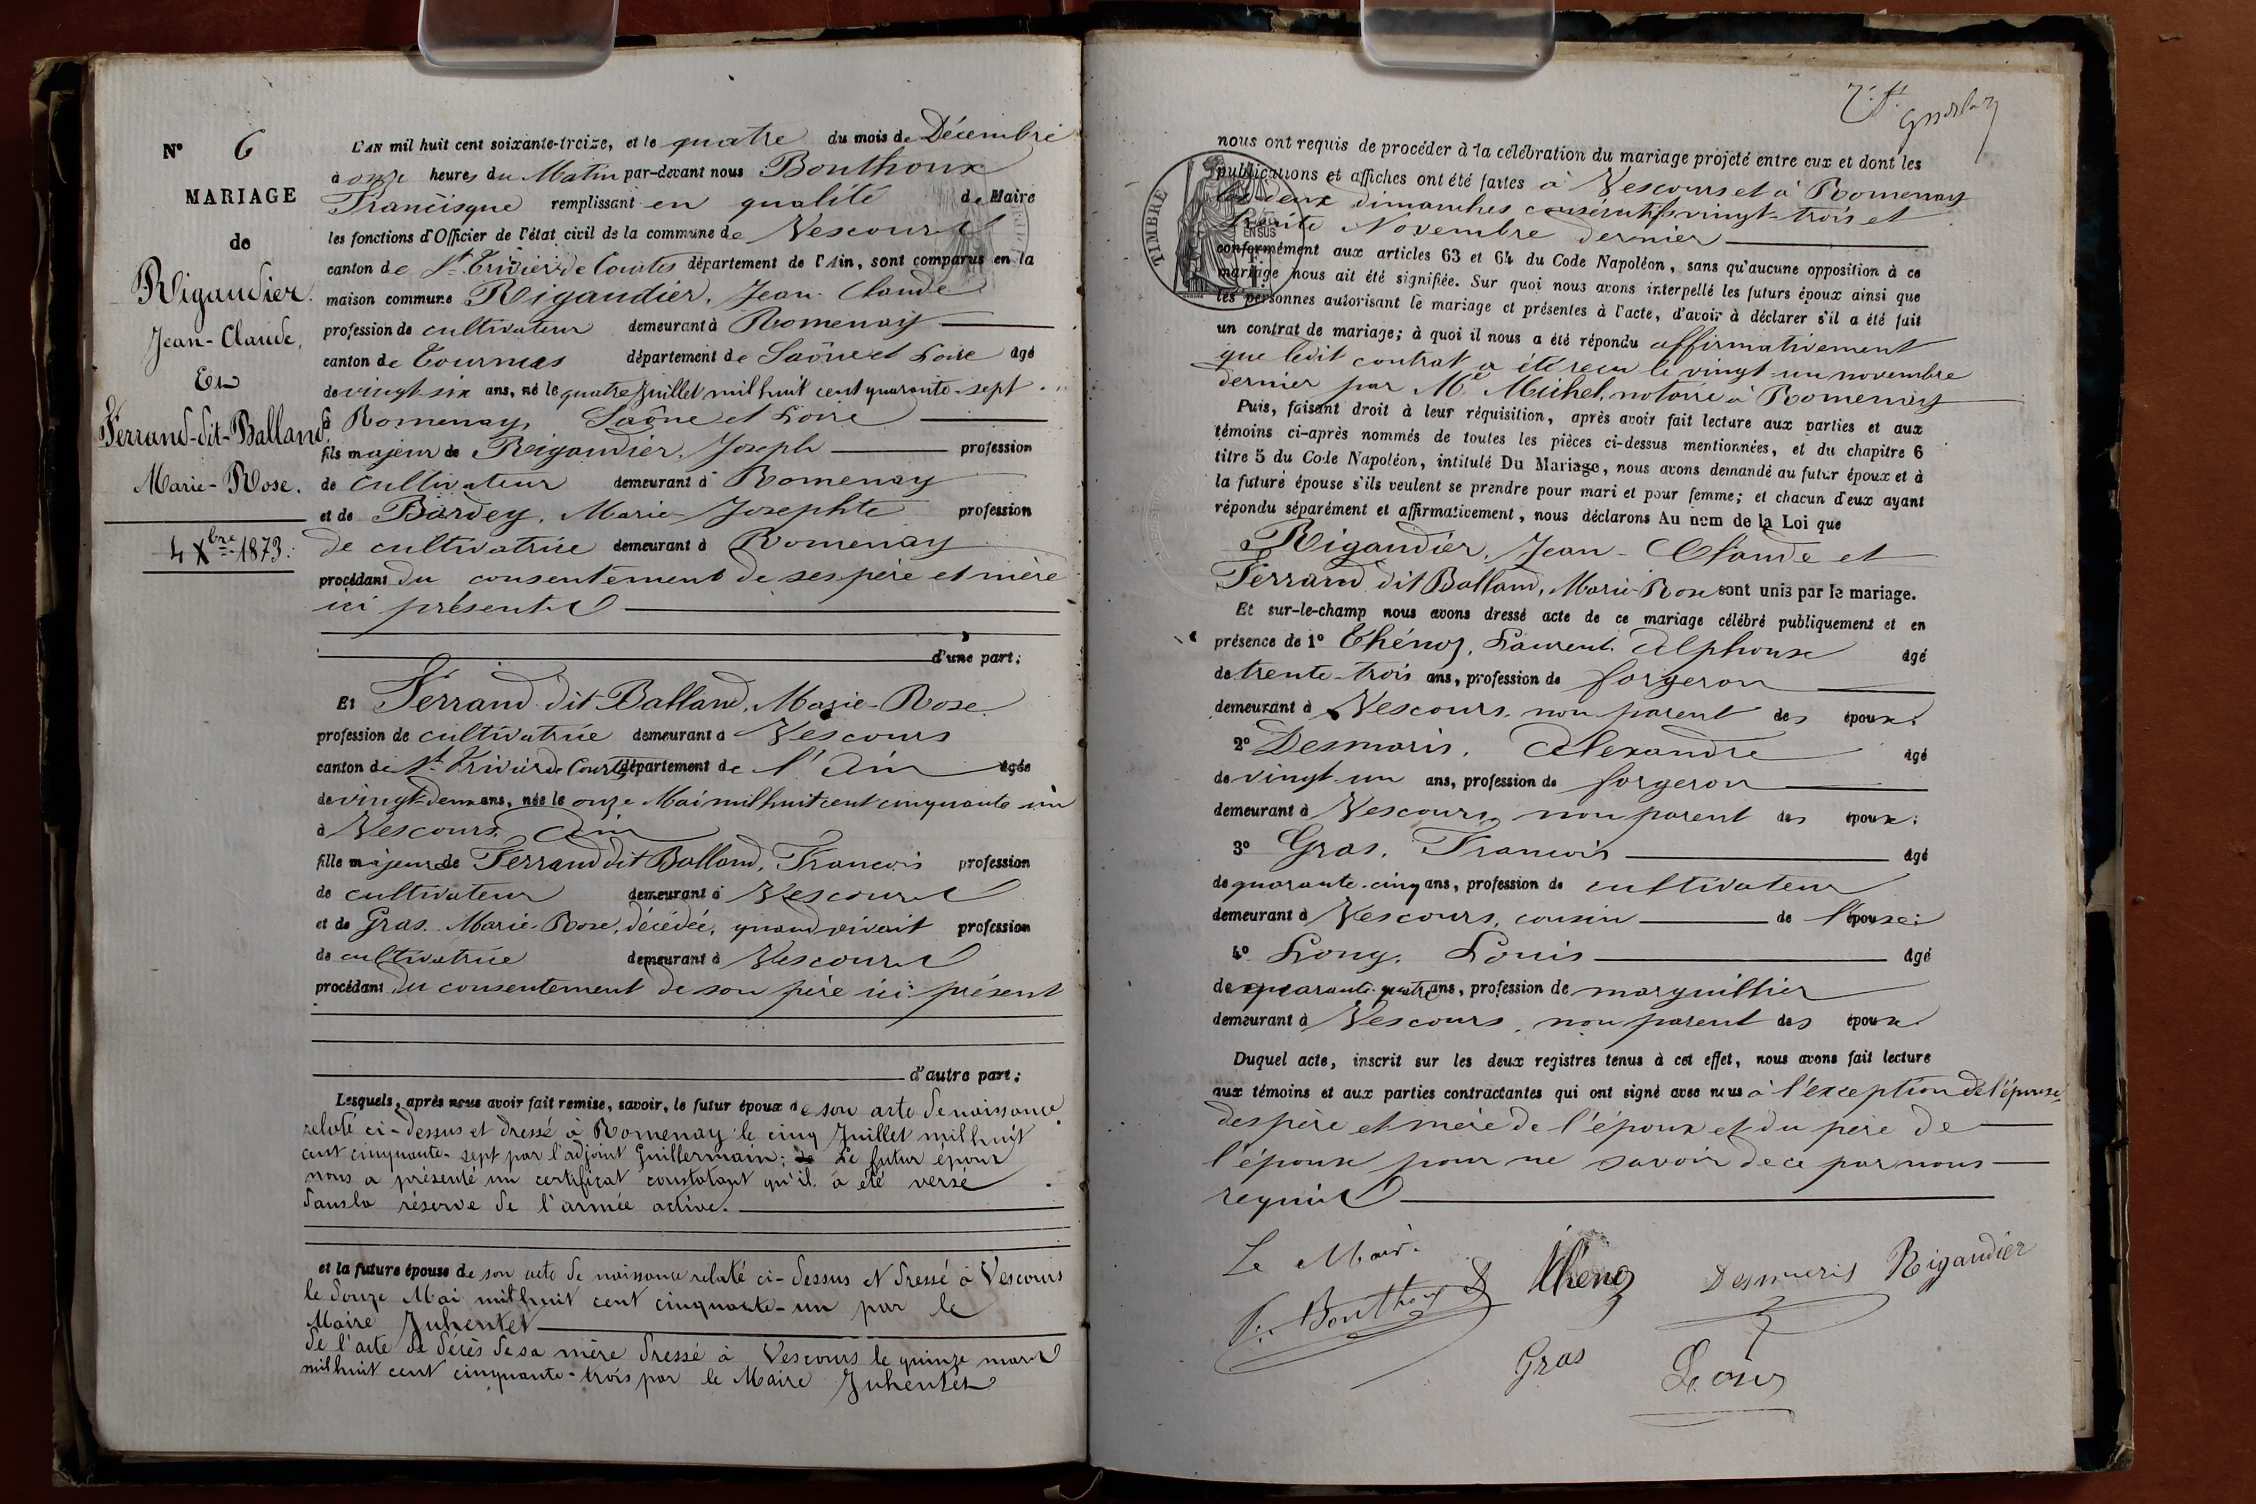 N° 6
MARIAGE
de
Rigaudier
Jean-Claude,
Et
Ferrand-dit-Balland,
Marie-Rose.
4 Xbre 1873.
L'AN mil huit cent soixante-treize, et le quatre du mois de Décembre
à onze heures du Matin par-devant nous Bouthoux
Francisque remplissant en qualité de Maire
les fonctions d'Officier de l'état civil de la commune de Vescours
canton de St Trivier de Courtes département de l'Ain, sont comparus en la
maison commune Rigaudier, Jean-Claude
profession de cultivateur demeurant à Romenay
canton de Tournus département de Saône et Loire âgé
de vingt six ans, né le quatre Juillet mil huit cent quarante-sept
à Romenay, Saône et Loire
fils majeur de Rigaudier, Joseph profession
de cultivateur demeurant à Romenay
et de Bardey, Marie Josephte profession
de cultivatrice demeurant à Romenay
procédant du consentement de ses père et mère
ici présents
d'une part;
Et Ferrand dit Balland, Marie-Rose
profession de cultivatrice demeurant à Vescours
canton de St Trivier de Courtes département de l'Ain âgée
de vingt-deux ans, née le onze Mai mil huit cent cinquante un
à Vescours, Ain
fille majeure de Ferrand dit Balland, François profession
de cultivateur demeurant à Vescours
et de Gras, Marie-Rose, décédée, quand vivait profession
de cultivatrice demeurant à Vescours
procédant du consentement de son père ici présent
d'autre part;
Lesquels, après nous avoir fait remise, savoir, le futur époux de son acte de naissance
relaté ci-dessus et dressé à Romenay le cinq Juillet mil huit
cent cinquante-sept par l'adjoint Guillermain; Le futur époux
nous a présenté un certificat constatant qu'il a été versé
dans la réserve de l'armée active.
et la future épouse de son acte de naissance relaté ci-dessus et dressé à Vescours
le douze Mai mil huit cent cinquante-un par le
Maire Juhentet
de l'acte de décès de sa mère dressé à Vescours le quinze mars
mil huit cent cinquante-trois par le Maire Juhentet
nous ont requis de procéder à la célébration du mariage projeté entre eux et dont les
TIMBRE
publications et affiches ont été faites à Vescours et à Romenay
les deux dimanches consécutifs vingt-trois et
trente Novembre dernier
conformément aux articles 63 et 64 du Code Napoléon, sans qu'aucune opposition à ce
mariage nous ait été signifiée. Sur quoi nous avons interpellé les futurs époux ainsi que
les personnes autorisant le mariage et présentes à l'acte, d'avoir à déclarer s'il a été fait
un contrat de mariage; à quoi il nous a été répondu affirmativement
que ledit contrat a été reçu le vingt-un novembre
dernier par Me Michel, notaire à Romenay
Puis, faisant droit à leur réquisition, après avoir fait lecture aux parties et aux
témoins ci-après nommés de toutes les pièces ci-dessus mentionnées, et du chapitre 6
titre 5 du Code Napoléon, intitulé Du Mariage, nous avons demandé au futur époux et à
la future épouse s'ils veulent se prendre pour mari et pour femme; et chacun d'eux ayant
répondu séparément et affirmativement, nous déclarons Au nom de la Loi que
Rigaudier, Jean-Claude et
Ferrand dit Balland, Marie-Rose sont unis par le mariage.
Et sur-le-champ nous avons dressé acte de ce mariage célébré publiquement et en
présence de 1° Thénoz, Laurent Alphonse âgé
de trente-trois ans, profession de forgeron
demeurant à Vescours, non parent des époux;
2° Desmaris, Alexandre âgé
de vingt-un ans, profession de forgeron
demeurant à Vescours, non parent des époux;
3° Gras, François âgé
de quarante-cinq ans, profession de cultivateur
demeurant à Vescours, cousin de l'épouse;
4° Long, Louis âgé
de quarante-quatre ans, profession de marguillier
demeurant à Vescours, non parent des époux.
Duquel acte, inscrit sur les deux registres tenus à cet effet, nous avons fait lecture
aux témoins et aux parties contractantes qui ont signé avec nous à l'exception de l'épouse,
des père et mère de l'époux et du père de
l'épouse pour ne savoir de ce par nous
requis
Le Maire
F. Bouthoux Thénoz Desmeris Rigaudier
Gras Long